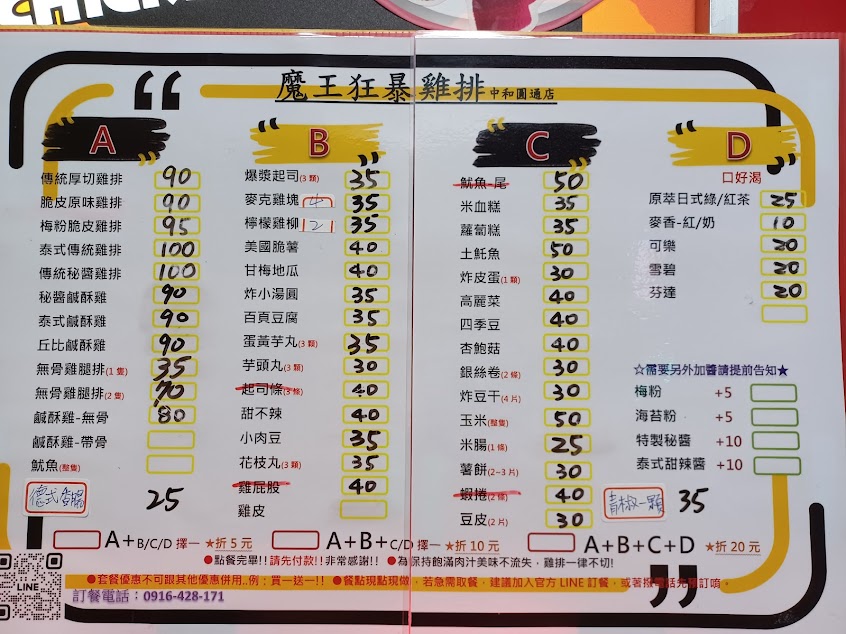 魔王狂暴雞排 中和圓通店
A
傳統厚切雞排 90
脆皮原味雞排 90
梅粉脆皮雞排 95
泰式傳統雞排 100
傳統秘醬雞排 100
秘醬鹹酥雞 90
泰式鹹酥雞 90
丘比鹹酥雞 90
無骨雞腿排(1隻) 35
無骨雞腿排(2隻) 70
鹹酥雞-無骨 80
鹹酥雞-帶骨
魷魚(整隻)
德式 25
B
爆漿起司(3顆) 35
麥克雞塊 4 35
檸檬雞柳 12 35
美國脆薯 40
甘梅地瓜 40
炸小湯圓 35
百頁豆腐 35
蛋黃芋丸(3顆) 35
芋頭丸(3顆) 30
起司條(3條) 40
甜不辣 40
小肉豆 35
花枝丸(3顆) 35
雞屁股 40
雞皮
C
魷魚-尾 50
米血糕 35
蘿蔔糕 35
土魠魚 50
炸皮蛋(1顆) 30
高麗菜 40
四季豆 40
杏鮑菇 40
銀絲卷(2條) 30
炸豆干(4片) 30
玉米(整隻) 50
米腸(1條) 25
薯餅(2~3片) 30
蝦捲(2條) 40
豆皮(2片) 30
D
口好渴
原萃日式綠/紅茶 25
麥香-紅/奶 10
可樂 20
雪碧 20
芬達 20
☆需要另外加醬請提前告知★
梅粉 +5
海苔粉 +5
特製秘醬 +10
泰式甜辣醬 +10
青椒一顆 35
A+B/C/D 擇一 ★折 5 元
A+B+C/D 擇一 ★折 10 元
A+B+C+D ★折 20 元
●點餐完畢!!請先付款!!非常感謝!! ●為保持飽滿肉汁美味不流失，雞排一律不切!
●套餐優惠不可跟其他優惠併用..例：買一送一!! ●餐點現點現做，若急需取餐，建議加入官方 LINE 訂餐，或著撥電話先預訂唷。
LINE
訂餐電話：0916-428-171